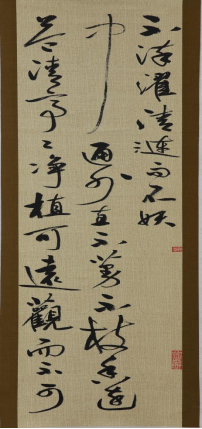 不染濯清漣而不妖
中通外直不蔓不枝香遠
益清亭々净植可遠觀而不可